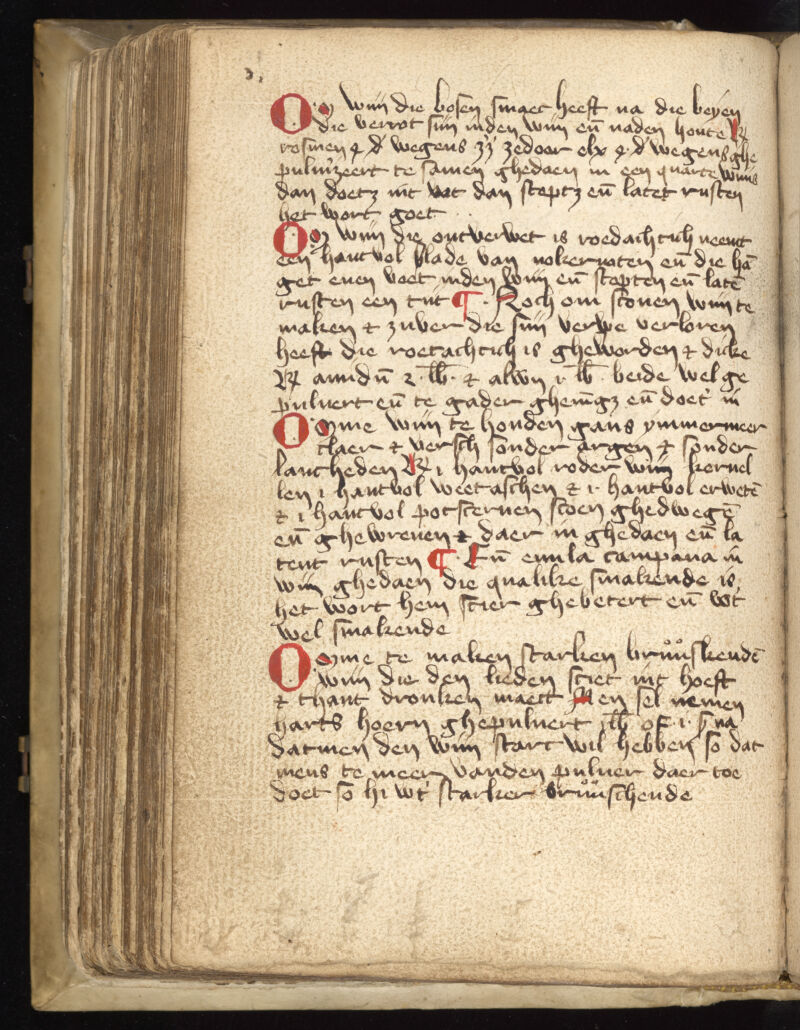 Om wijn die bosen smaec heeft na die beyen
die verrot sijn inden wijn en̄ naden honte ℞
rosinen wegens zedoar elx wegens ghe
puluizeert te samen ghedaen in een quarte wijns
dan doetz uit vat dan steptz en̄ latet rusten
het wort goet
Om wijn die ontverwet is roedachtich neemt
een hantvol blade van nokernoten en̄ die hā
get enen voet inden wijn en̄ stepten en̄ latē
rusten een tijt ¶ Noch om sconen wijn te
maken ⁊ zuver die sijn verwe verloren
heeft die roetachtich is gheworden ⁊ dicke
℞ amidū 2 lb̄ ⁊ alwn̄ i lb̄ beide wel ge
puluert en̄ te gader ghemēgz en̄ doet in
Omme wijn te houden gans ymmermeer
claer ⁊ versch sonder argen ⁊ sonder
lancheden ℞ i hantvol roder wijn kernel
len i hantvol weetaschen ⁊ i hantvol erwetē
⁊ i hantvol potsceruen scoen ghedwegē
en̄ ghewreuen ⁊ daer in ghedaen en̄ la
tent rusten ¶ En̄ enula campana in
wijn ghedaen die qualike smakende is
het wort hem scier ghebetert en̄ wt
wel smakende
Omme te maken starken bruuskendē
wijn die den lieden sciet int hoeft
⁊ thant dronken maect Men sel nemen
harts hoern ghepuluert lb̄ of i na
datmen den wijn starc wil hebben so dat
mens te meer vanden puluer daer toe
doet so hi wt starker bruuschende